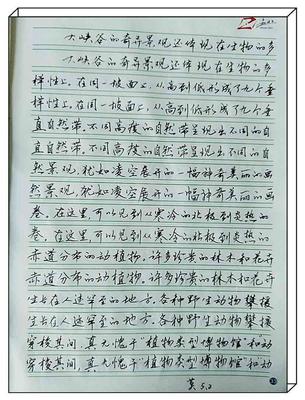 大峡谷的奇异景观还体现在生物的多
大峡谷的奇异景观还体现在生物的多
样性上。在同一坡面上，从高到低形成了九个垂
样性上。在同一坡面上，从高到低形成了九个垂
直自然带。不同高度的自然带呈现出不同的自
直自然带，不同高度的自然带呈现出不同的自
然景观，犹如凌空展开的一幅神奇美丽的画
然景观，犹如凌空展开的一幅神奇美丽的画
卷。在这里，可以见到从寒冷的北极到炎热的
卷。在这里，可以见到从寒冷的北极到炎热的
赤道分布的动植物。许多珍贵的林木和花卉
赤道分布的动植物。许多珍贵的林木和花卉
生长在人迹罕至的地方。各种野生动物攀援
生长在人迹罕至的地方。各种野生动物攀援
穿梭其间，真无愧于“植物类型博物馆”和“动
穿梭其间，真无愧于“植物类型博物馆”和“动
5.2
33